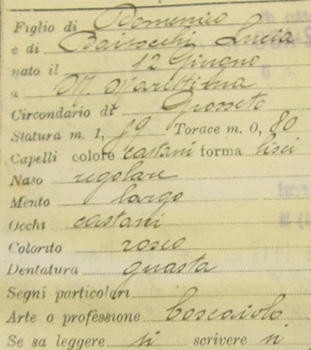 Figlio di Domenico
e di Baiocchi Lucia
nato il 12 Giugno
a M. Marittima
Circondario di Grosseto
Statura m. 1, 59 Torace m. 0, 80
Capelli colore castani forma lisci
Naso regolare
Mento largo
Occhi castani
Colorito roseo
Dentatura guasta
Segni particolari
Arte o professione boscaiolo
Se sa leggere si scrivere si